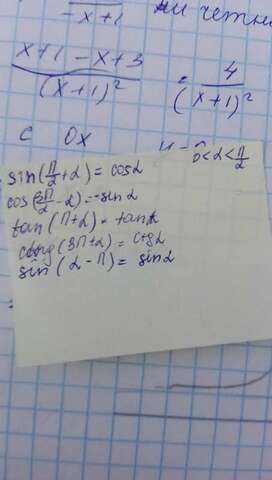 -x+1
ни четн
x+1-x+3
(x+1)²
= 4
(x+1)²
с Ox
0<α<π/2
sin(π/2+α)=cosα
cos(3π/2-α)=-sinα
tan(π+α)=tanα
ctg(3π+α)=ctgα
sin(α-π)=sinα